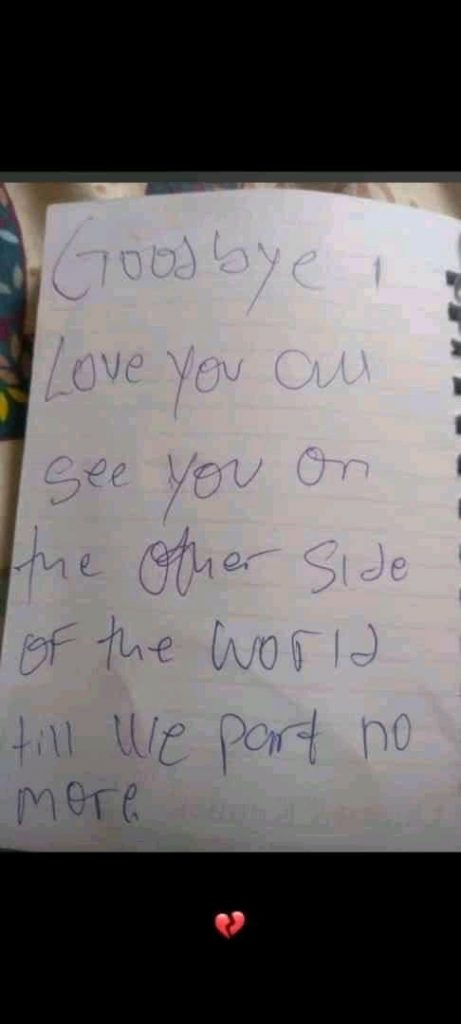 Goodbye, I
Love you all
see you on
the other side
of the world
till we part no
more